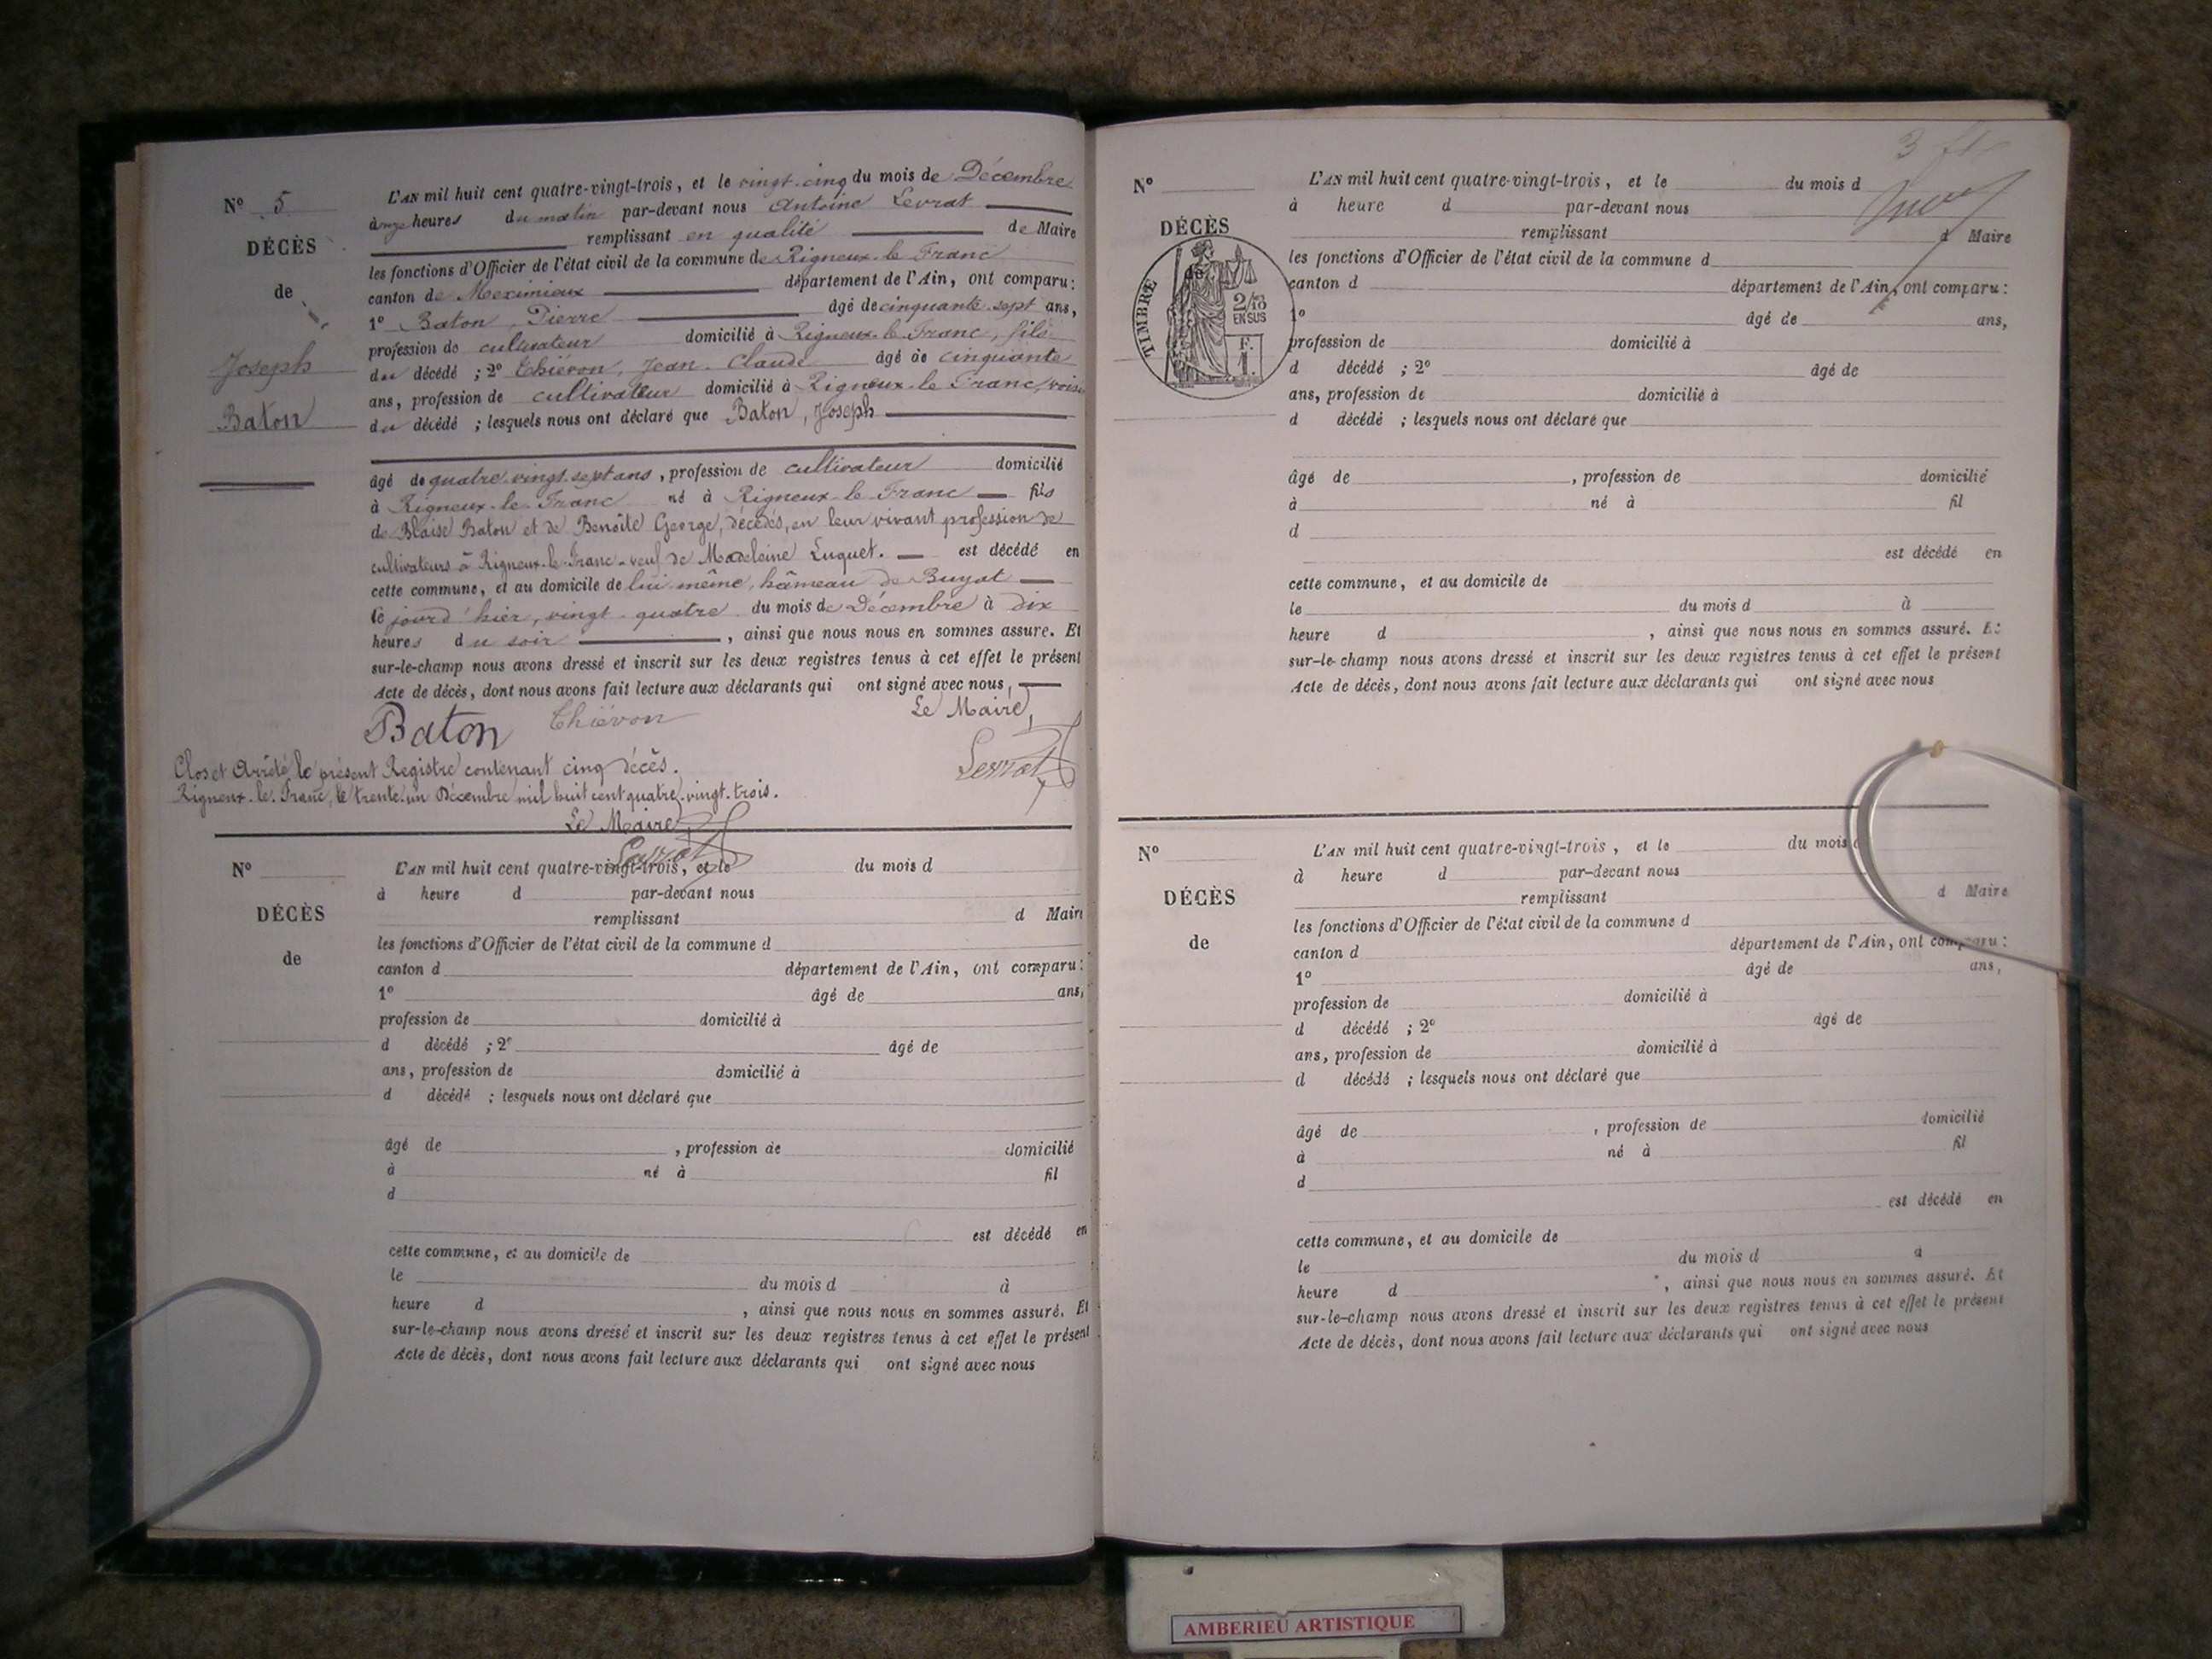 N° 5
DÉCÈS
de
Joseph
Baton
L'AN mil huit cent quatre-vingt-trois, et le vingt-cinq du mois de Décembre
à onze heures du matin par-devant nous Antoine Levrat
remplissant en qualité de Maire
les fonctions d'Officier de l'état civil de la commune de Rigneux-le-Franc
canton de Meximieux département de l'Ain, ont comparu :
1° Baton, Pierre âgé de cinquante-sept ans,
profession de cultivateur domicilié à Rigneux-le-Franc, fils
du décédé ; 2° Thiévon, Jean-Claude âgé de cinquante
ans, profession de cultivateur domicilié à Rigneux-le-Franc, voisin
du décédé ; lesquels nous ont déclaré que Baton, Joseph
âgé de quatre-vingt-sept ans, profession de cultivateur domicilié
à Rigneux-le-Franc né à Rigneux-le-Franc fils
de Blaise Baton et de Benoîte George, décédés, en leur vivant profession de
cultivateurs à Rigneux-le-Franc - veuf de Madeleine Luquet. est décédé en
cette commune, et au domicile de lui-même, hâmeau de Buyat
le jourd'hier, vingt-quatre du mois de Décembre à dix
heures du soir, ainsi que nous nous en sommes assuré. Et
sur-le-champ nous avons dressé et inscrit sur les deux registres tenus à cet effet le présent
Acte de décès, dont nous avons fait lecture aux déclarants qui ont signé avec nous,
Baton Thiévon Le Maire,
Levrat
Clos et Arrêté le présent Registre contenant cinq décès.
Rigneux-le-Franc, le trente-un Décembre mil huit cent quatre-vingt-trois.
Le Maire
Levrat
N°
DÉCÈS
de
L'AN mil huit cent quatre-vingt-trois, et le du mois d
à heure d par-devant nous
remplissant d Maire
les fonctions d'Officier de l'état civil de la commune d
canton d département de l'Ain, ont comparu :
1° âgé de ans,
profession de domicilié à
d décédé ; 2° âgé de
ans, profession de domicilié à
d décédé ; lesquels nous ont déclaré que
âgé de , profession de domicilié
à né à fil
d
est décédé en
cette commune, et au domicile de
le du mois d à
heure d , ainsi que nous nous en sommes assuré. Et
sur-le-champ nous avons dressé et inscrit sur les deux registres tenus à cet effet le présent
Acte de décès, dont nous avons fait lecture aux déclarants qui ont signé avec nous
3
N°
DÉCÈS
TIMBRE
2/10
EN SUS
F.
1.
L'AN mil huit cent quatre-vingt-trois, et le du mois d
à heure d par-devant nous
remplissant d Maire
les fonctions d'Officier de l'état civil de la commune d
canton d département de l'Ain, ont comparu :
1° âgé de ans,
profession de domicilié à
d décédé ; 2° âgé de
ans, profession de domicilié à
d décédé ; lesquels nous ont déclaré que
âgé de , profession de domicilié
à né à fil
d
est décédé en
cette commune, et au domicile de
le du mois d à
heure d , ainsi que nous nous en sommes assuré. Et
sur-le-champ nous avons dressé et inscrit sur les deux registres tenus à cet effet le présent
Acte de décès, dont nous avons fait lecture aux déclarants qui ont signé avec nous
N°
DÉCÈS
de
L'AN mil huit cent quatre-vingt-trois, et le du mois d
à heure d par-devant nous
remplissant d Maire
les fonctions d'Officier de l'état civil de la commune d
canton d département de l'Ain, ont comparu :
1° âgé de ans,
profession de domicilié à
d décédé ; 2° âgé de
ans, profession de domicilié à
d décédé ; lesquels nous ont déclaré que
âgé de , profession de domicilié
à né à fil
d
est décédé en
cette commune, et au domicile de
le du mois d à
heure d , ainsi que nous nous en sommes assuré. Et
sur-le-champ nous avons dressé et inscrit sur les deux registres tenus à cet effet le présent
Acte de décès, dont nous avons fait lecture aux déclarants qui ont signé avec nous
AMBERIEU ARTISTIQUE